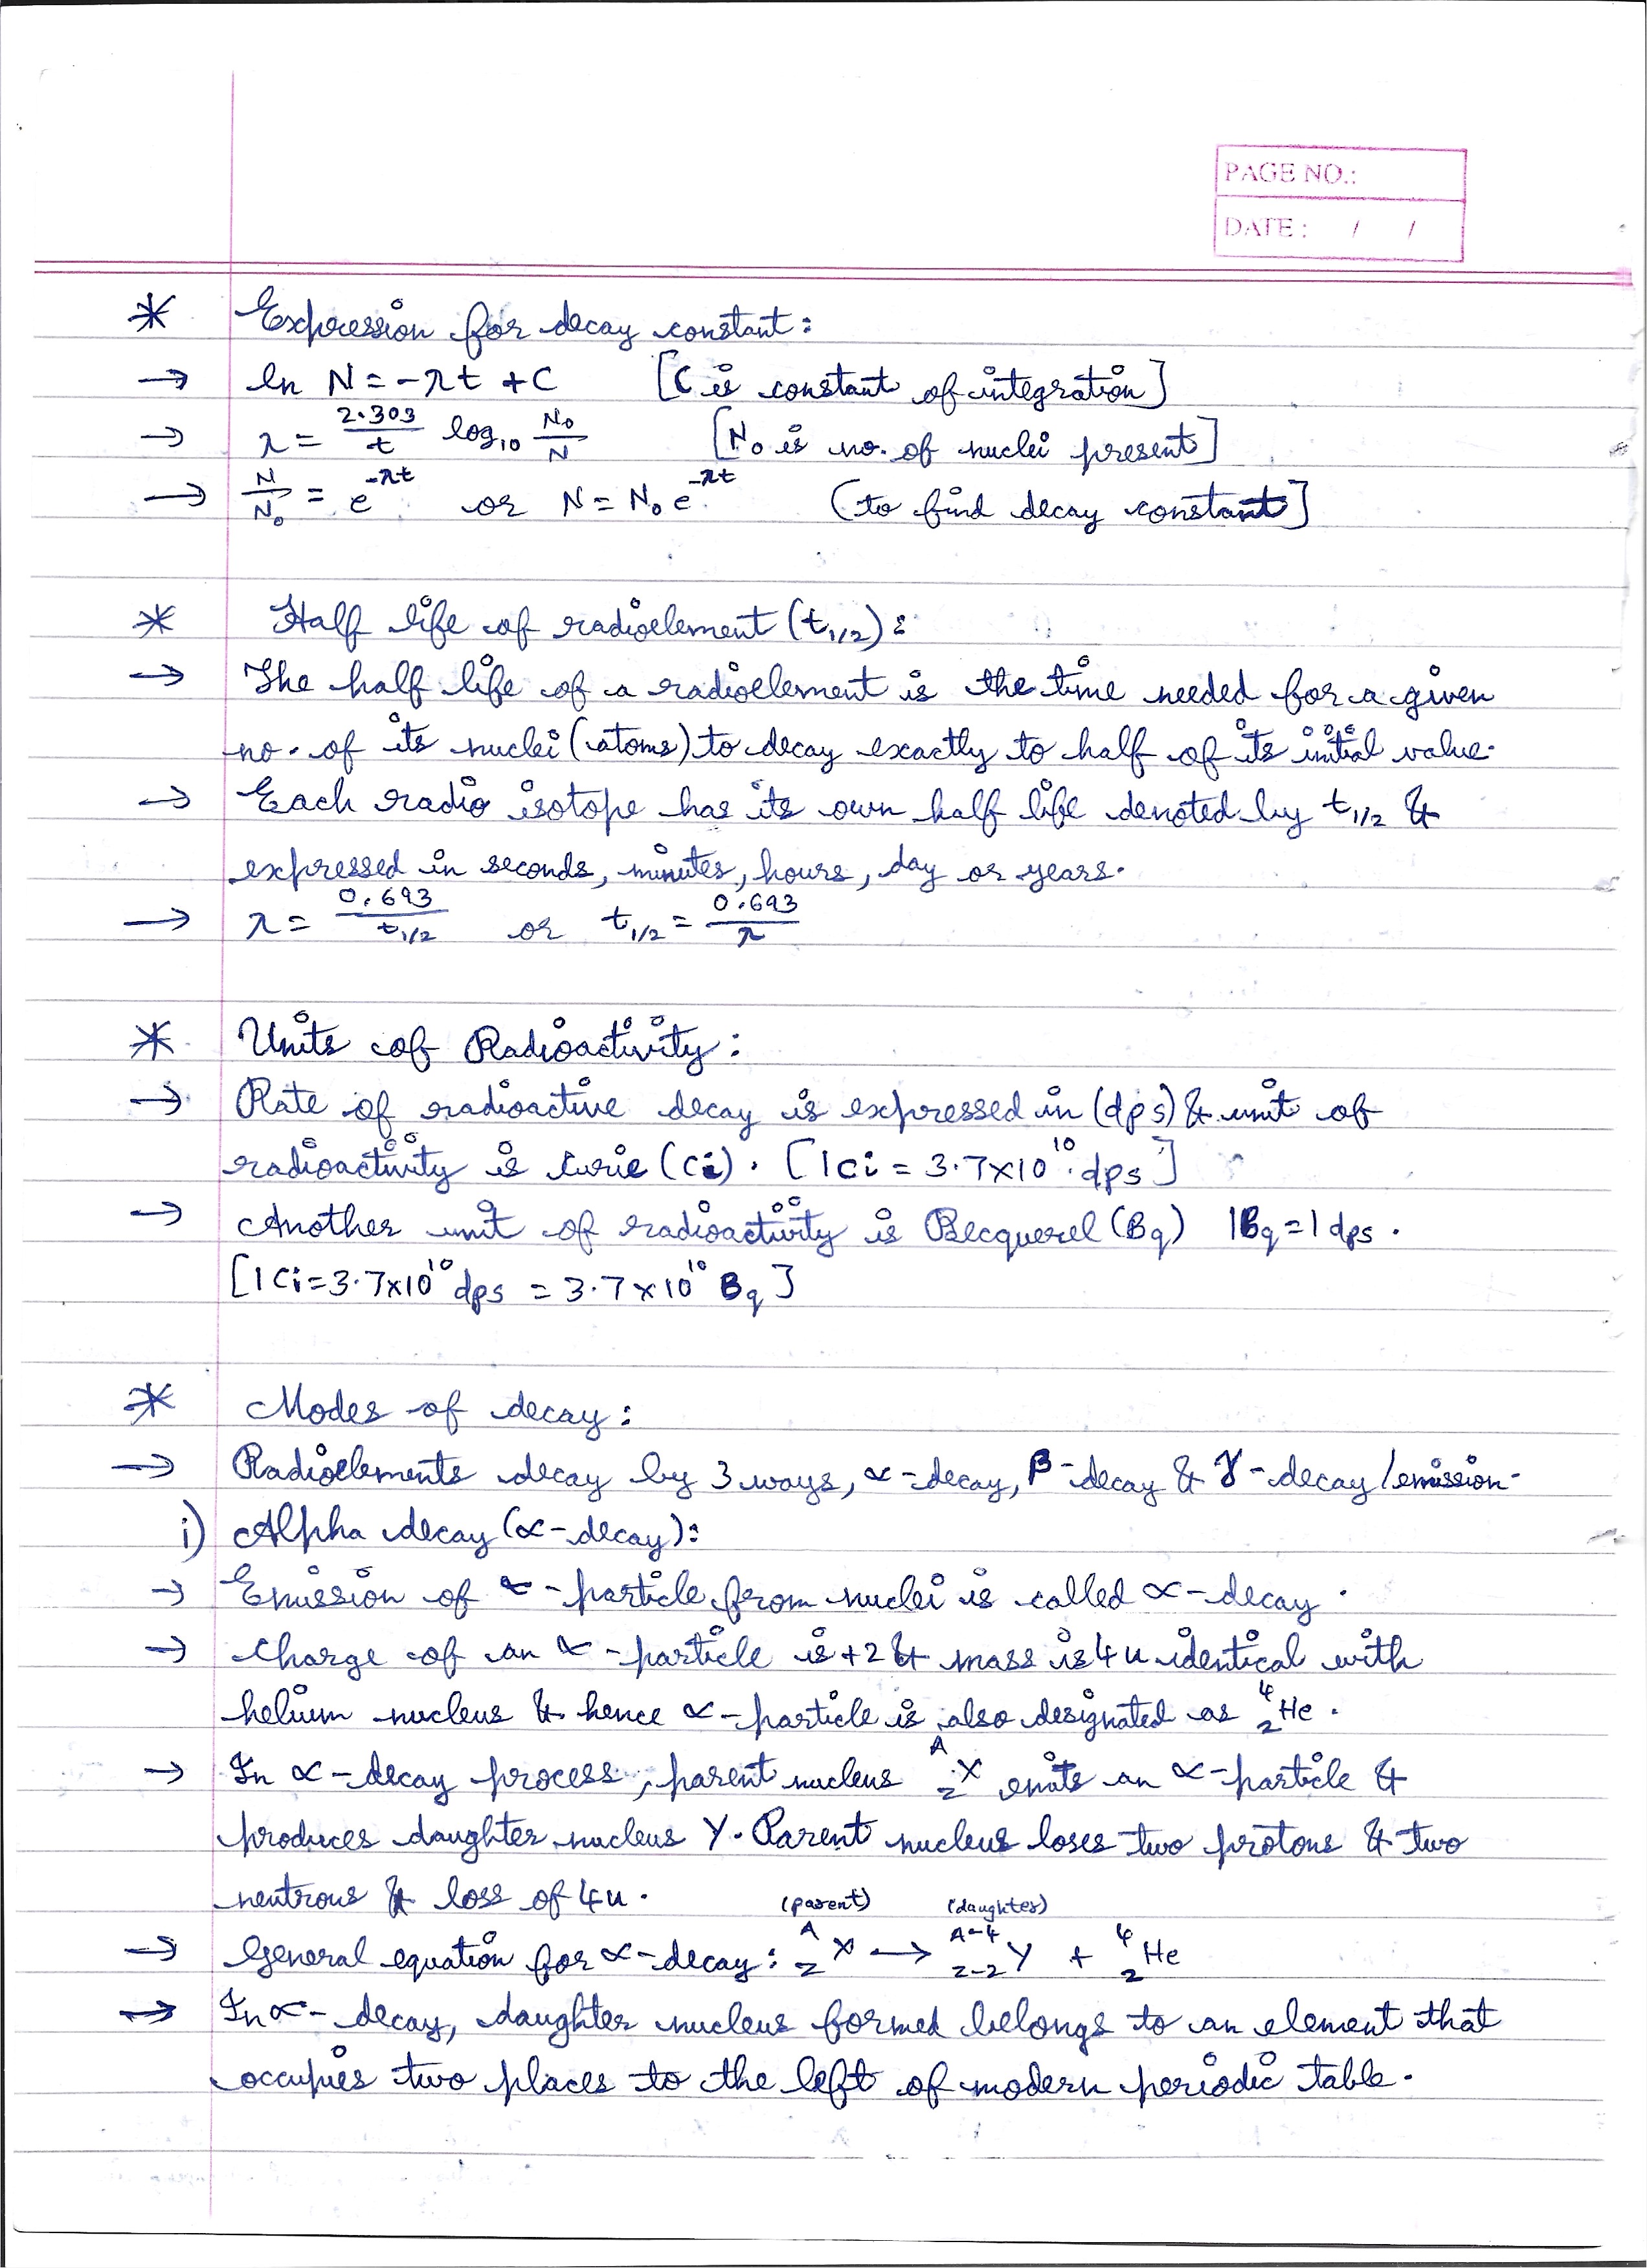 PAGE NO.:
DATE : / /
* Expression for decay constant:
→ ln N = -λt + C [C is constant of integration]
→ λ = 2.303/t log₁₀ N₀/N [N₀ is no. of nuclei present]
→ N/N₀ = e^-λt or N = N₀ e^-λt (to find decay constant]
* Half life of radioelement (t1/2):
→ The half life of a radioelement is the time needed for a given
no. of its nuclei (atoms) to decay exactly to half of its initial value.
→ Each radio isotope has its own half life denoted by t1/2 &
expressed in seconds, minutes, hours, day or years.
→ λ = 0.693/t1/2 or t1/2 = 0.693/λ
* Units of Radioactivity:
→ Rate of radioactive decay is expressed in (dps) & unit of
radioactivity is Curie (Ci). [1Ci = 3.7×10¹⁰ dps]
→ Another unit of radioactivity is Becquerel (Bq) 1Bq = 1 dps.
[1Ci = 3.7×10¹⁰ dps = 3.7×10¹⁰ Bq]
* Modes of decay:
→ Radioelements decay by 3 ways, α-decay, β-decay & γ-decay/emission-
i) Alpha decay (α-decay):
→ Emission of α-particle from nuclei is called α-decay.
→ Charge of an α-particle is +2 & mass is 4u identical with
helium nucleus & hence α-particle is also designated as ⁴₂He.
→ In α-decay process, parent nucleus ᴬ_ZX emits an α-particle &
produces daughter nucleus Y. Parent nucleus loses two protons & two
neutrons & loss of 4u.
(parent) (daughter)
→ General equation for α-decay: ᴬ_ZX → ᴬ⁻⁴_Z-2Y + ⁴₂He
→ In α-decay, daughter nucleus formed belongs to an element that
occupies two places to the left of modern periodic table.